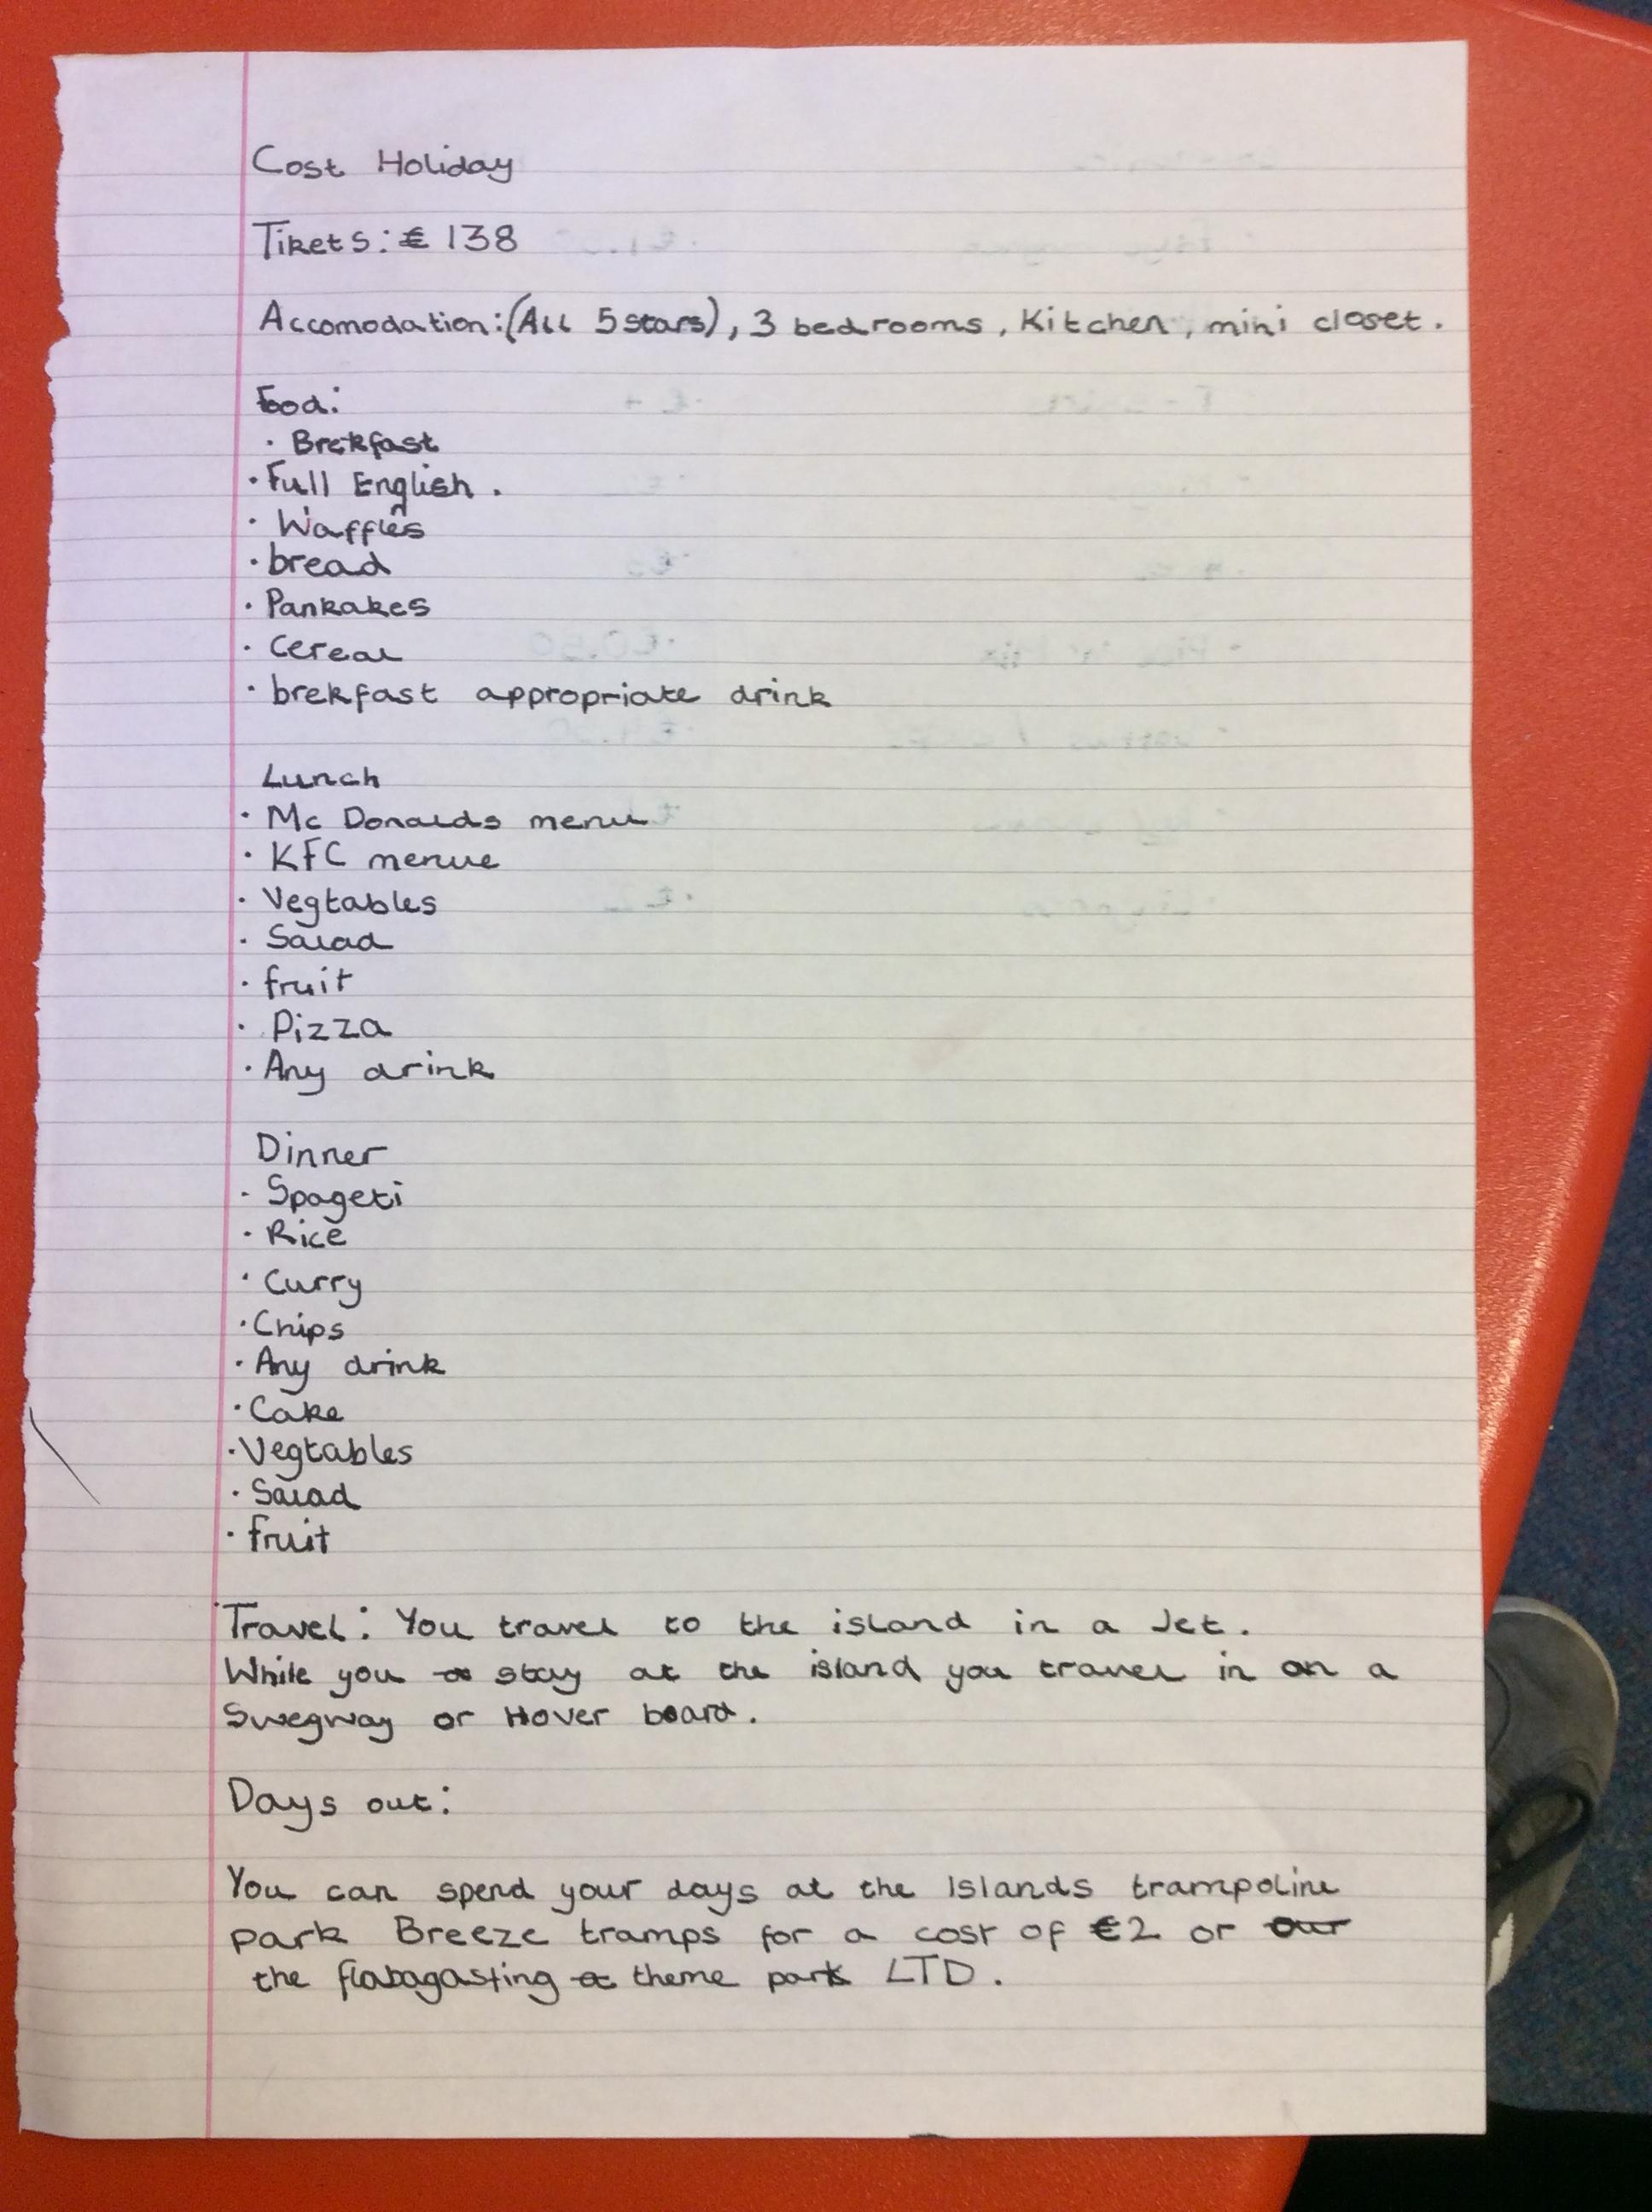 Cost Holiday
Tikets: € 138
Accomodation:(All 5 stars), 3 bedrooms, Kitchen, mini closet.
Food:
· Brekfast
· Full English.
· Waffles
· bread
· Pankakes
· cereal
· brekfast appropriate drink
Lunch
· Mc Donalds menu
· KFC menue
· Vegtables
· Salad
· fruit
· Pizza
· Any drink
Dinner
· Spageti
· Rice
· Curry
· Chips
· Any drink
· Cake
· Vegtables
· Salad
· fruit
Travel: You travel to the island in a Jet.
While you stay at the island you travel in on a
Swegway or Hover board.
Days out:
You can spend your days at the Islands trampoline
park Breeze tramps for a cost of €2 or our
the flabagasting theme park LTD.